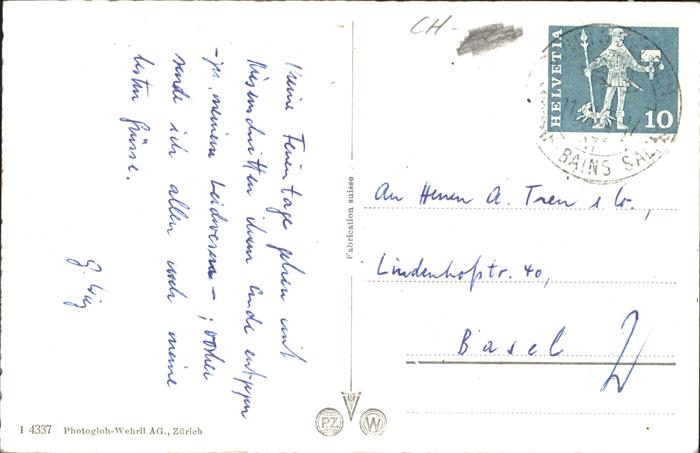 CH-
HELVETIA
10
BAINS SAL
Meine Ferientage gehen mit
Riesenschritten ihrem Ende entgegen
- zu meinem Leidwesen - ; vorher
sende ich allen noch meine
besten Grüsse.
An Herren A. Tren & Co.,
Lindenhofstr. 40,
Basel
Fabrication suisse
PZ W
I 4337 Photoglob-Wehrli AG., Zürich